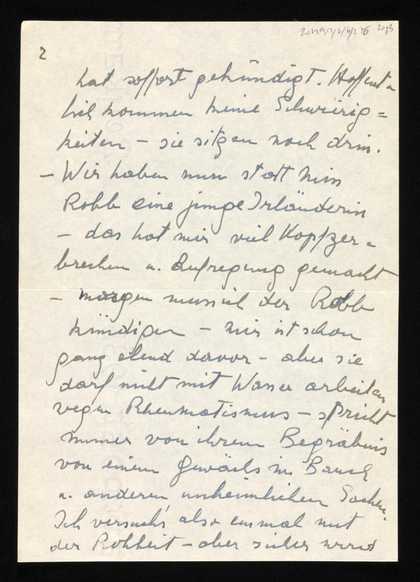 2
hat sofort gekündigt. Hoffent=
lich kommen keine Schwierig=
keiten – sie sitzen noch drin.
– Wir haben nun statt Miss
Robb eine junge Irländerin
– das hat mir viel Kopfzer=
brechen u. Aufregung gemacht
– morgen muss ich der Robb
kündigen – mir ist schon
ganz elend davor – aber sie
darf nicht mit Wasser arbeiten
wegen Rheumatismus – spricht
immer von ihrem Begräbnis
von einem Gewächs im Bauch
u. anderen unheimlichen Sachen.
Ich versuch's also einmal mit
der Rohheit – aber sicher